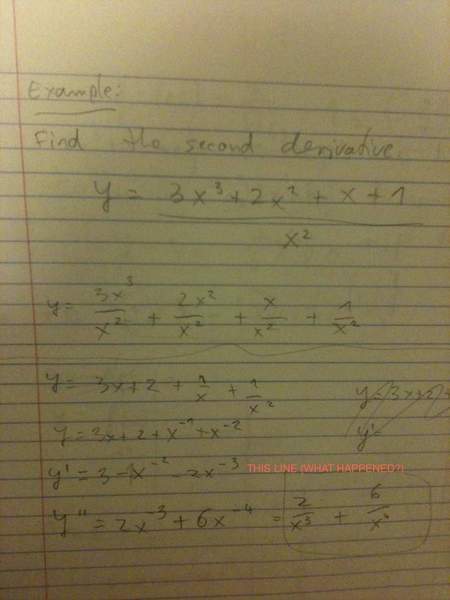 Example:
Find the second derivative.
y = (3x³ + 2x² + x + 1) / x²
y = 3x³/x² + 2x²/x² + x/x² + 1/x²
y = 3x + 2 + 1/x + 1/x²
y = 3x + 2 +
y = 3x + 2 + x⁻¹ + x⁻²
y'=
y' = 3 - x⁻² - 2x⁻³ THIS LINE (WHAT HAPPENED?)
y'' = 2x⁻³ + 6x⁻⁴ = 2/x³ + 6/x⁴